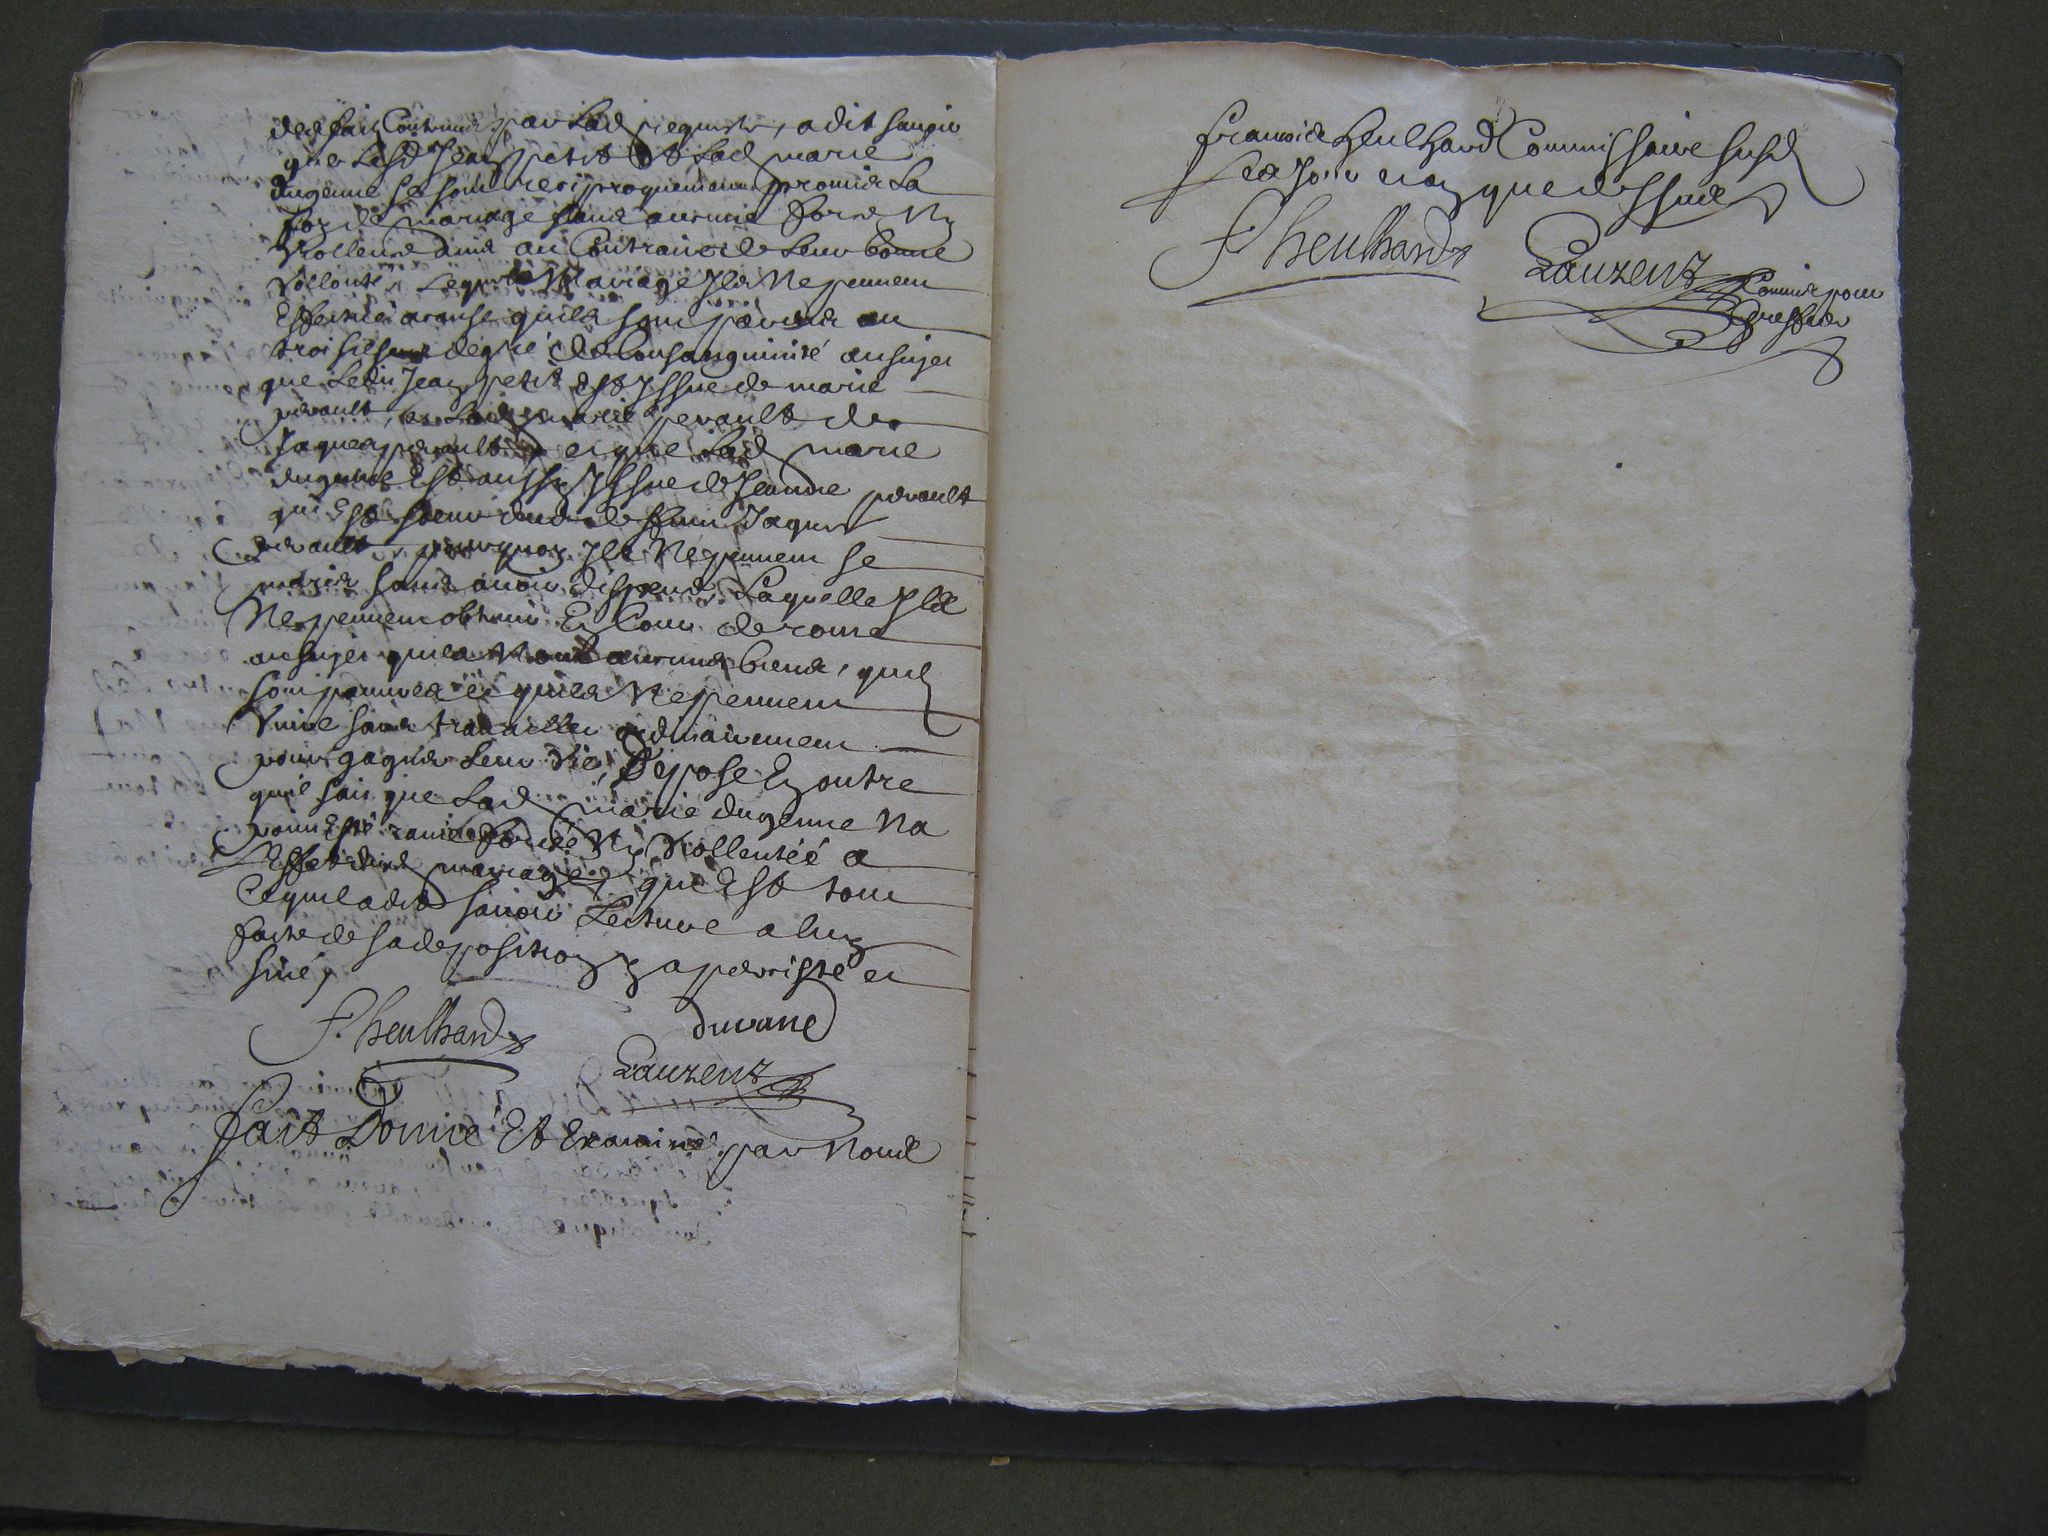 des faitz Contenus par Lad requeste, a dit savoir
que Lesd Jean petit Et Lad marie
dugenne se sont reciproquement promis La
foy de mariage sans aucune force Ny
Viollence ains au Contraire de Leur bonne
Vollonté, Lequel Mariage Ils Ne peuvent
Effectué a cause quils sont parens au
troisiesme degré de Consanguinité au sujet
que Ledit Jean petit Est Issue de marie
perault, et Lad marie perault de
Jaques perault, et que Lad marie
dugenne Est aussy Issue de Jeanne perault
qui Est soeur dud deffunt Jaques
perault, pourquoy Ils Ne peuvent se
marier sans avoir dispense, Laquelle Ils
Ne peuvent obtenir En Cour de rome
au sujet quils Nont aucuns biens, quils
sont pauvres et quils Ne peuvent
Vivre sans travailler ordinairement
pour gagner Leur Vie, Dépose En outre
quil sait que Lad marie dugenne Na
point Esté ravie forcée Ny Viollentée a
L'Effet dud mariage, qui Est tout
Ce quil a dit savoir Lecture a luy
faite de sa deposition y a persisté et
siné,
F. heulhard
durand
Lauzent
Fait Donné Et Examiné par Nous
francois heulhard Commissaire susd
Les Jour et an que dessus
F heulhard
Lauzent Commis pour
Greffier